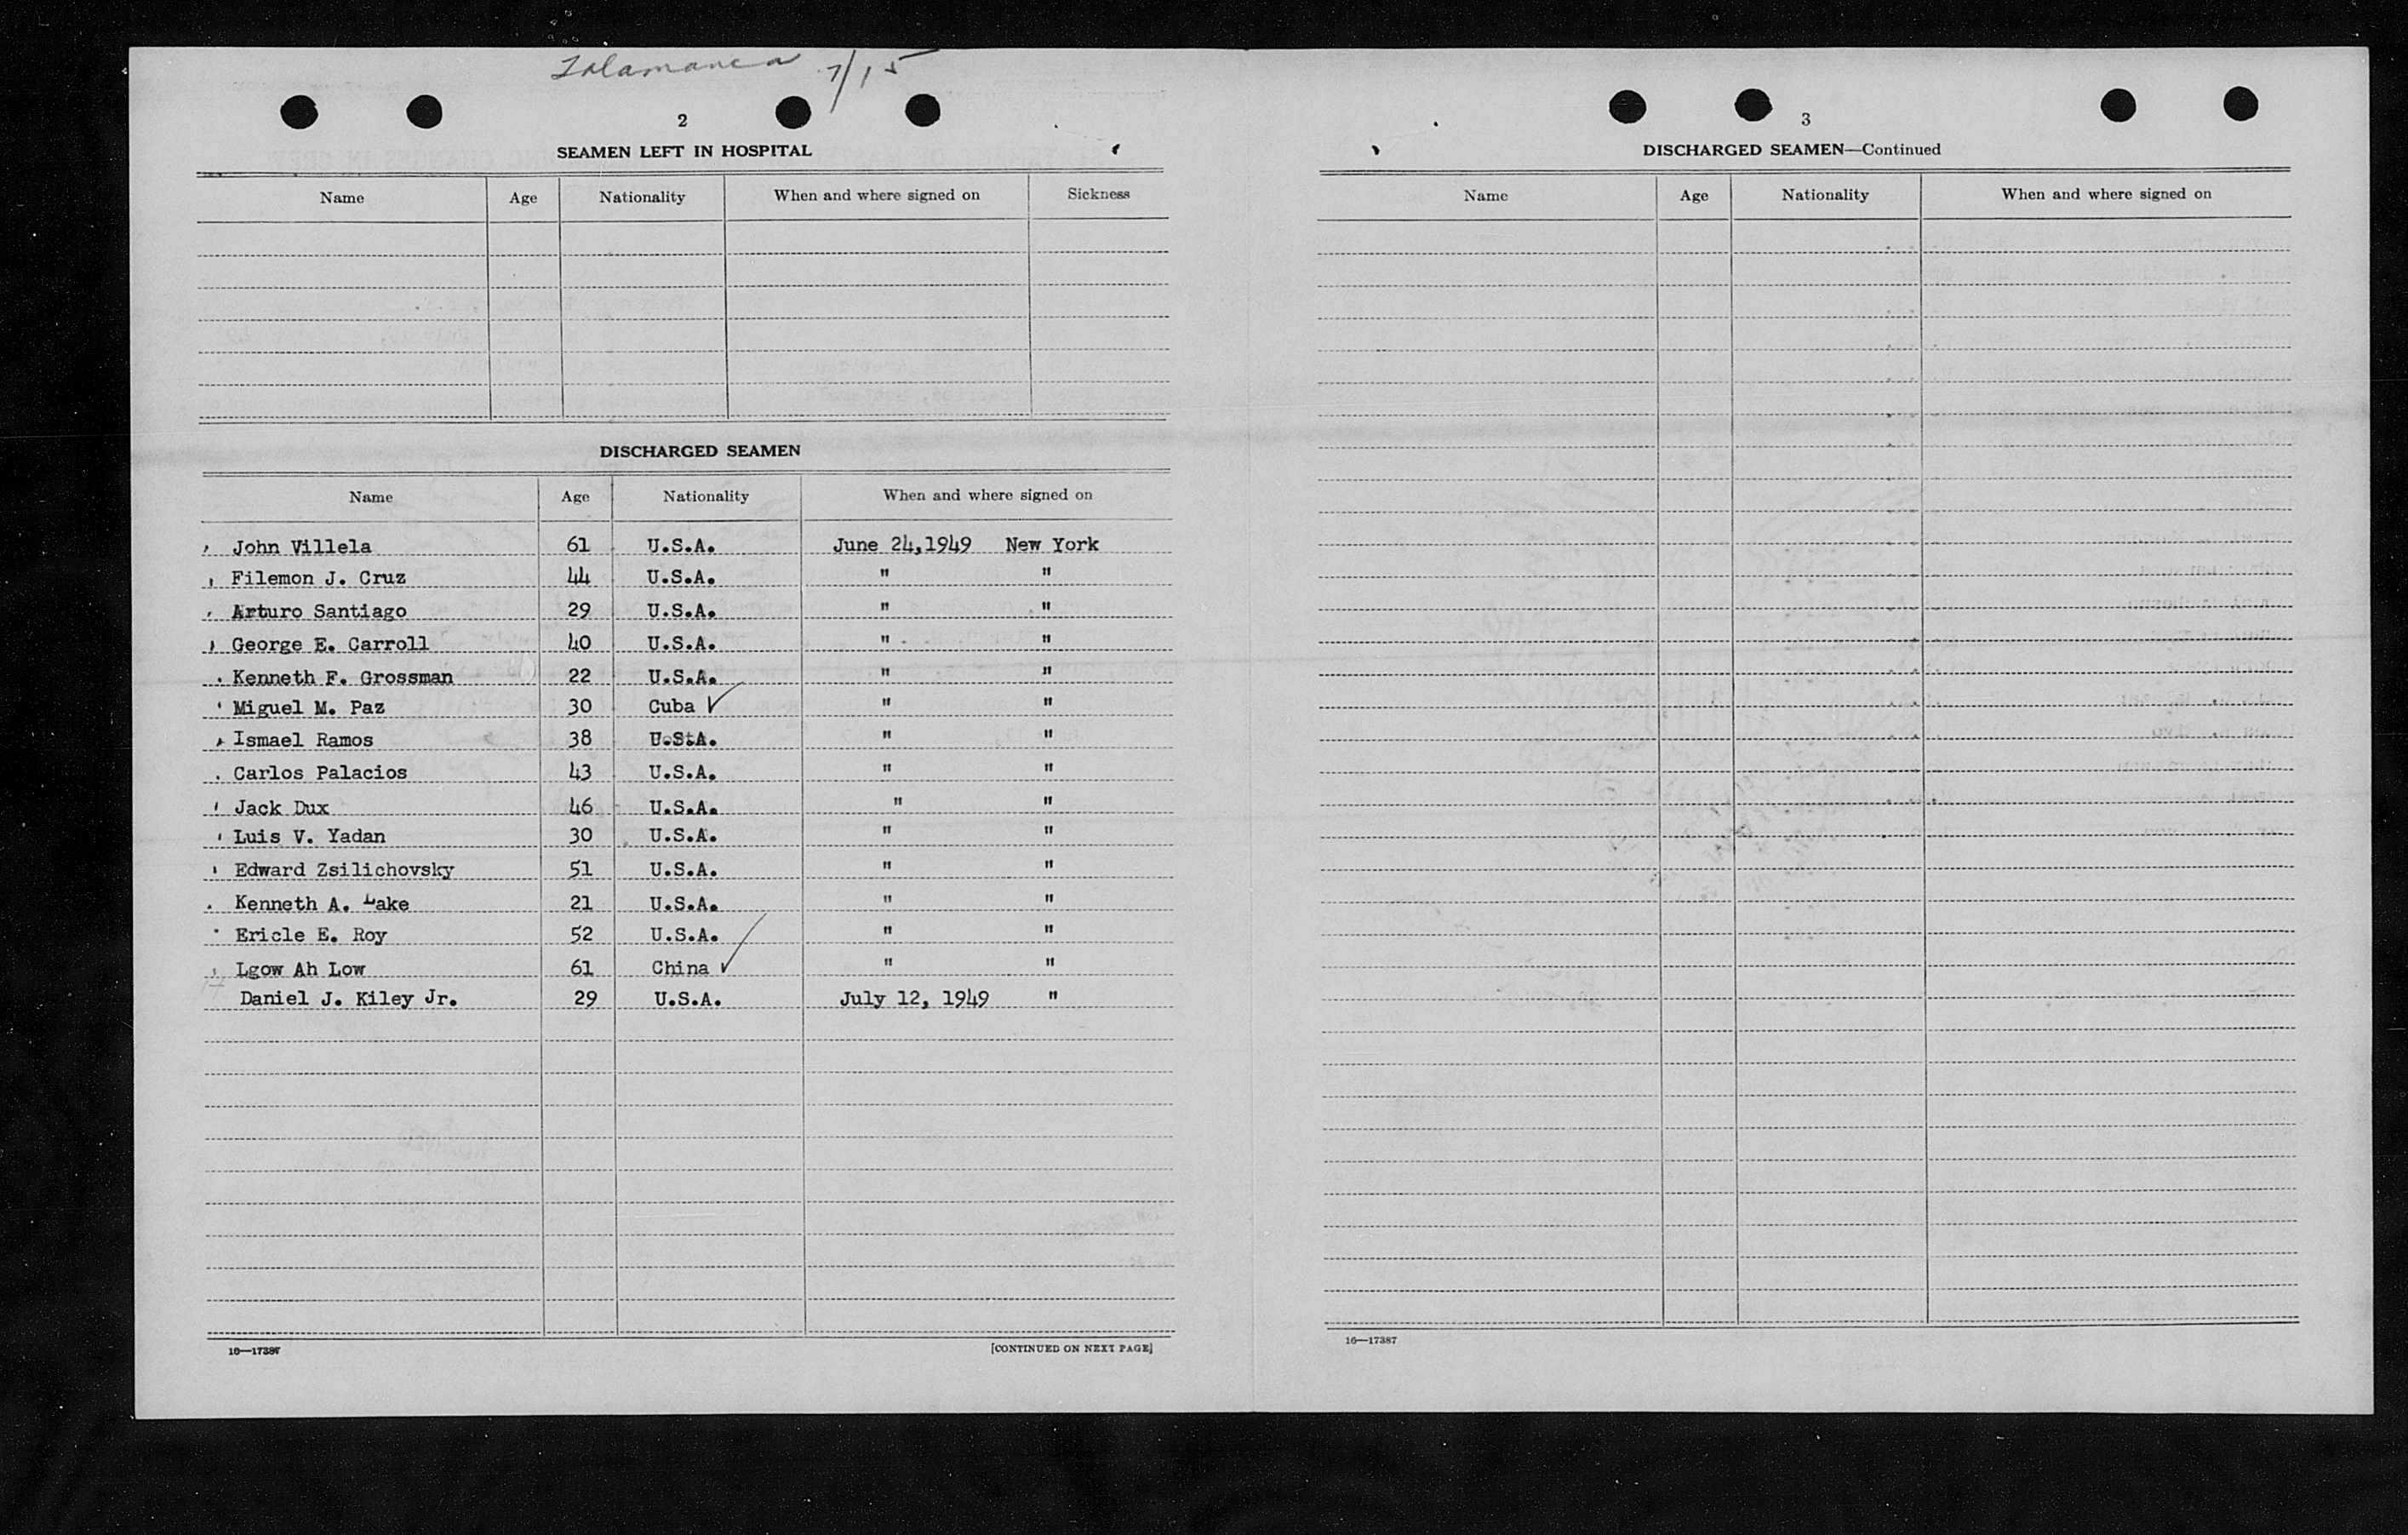 Salamanca 7/15
2
SEAMEN LEFT IN HOSPITAL
Name Age Nationality When and where signed on Sickness
DISCHARGED SEAMEN
Name Age Nationality When and where signed on
John Villela 61 U.S.A. June 24,1949 New York
Filemon J. Cruz 44 U.S.A. " "
Arturo Santiago 29 U.S.A. " "
George E. Carroll 40 U.S.A. " "
Kenneth F. Grossman 22 U.S.A. " "
Miguel M. Paz 30 Cuba ✓ " "
Ismael Ramos 38 U.S.A. " "
Carlos Palacios 43 U.S.A. " "
Jack Dux 46 U.S.A. " "
Luis V. Yadan 30 U.S.A. " "
Edward Zsilichovsky 51 U.S.A. " "
Kenneth A. Lake 21 U.S.A. " "
Ericle E. Roy 52 U.S.A. " "
Lgow Ah Low 61 China ✓ " "
Daniel J. Kiley Jr. 29 U.S.A. July 12, 1949 "
16—17387
[CONTINUED ON NEXT PAGE]
3
DISCHARGED SEAMEN—Continued
Name Age Nationality When and where signed on
16—17387